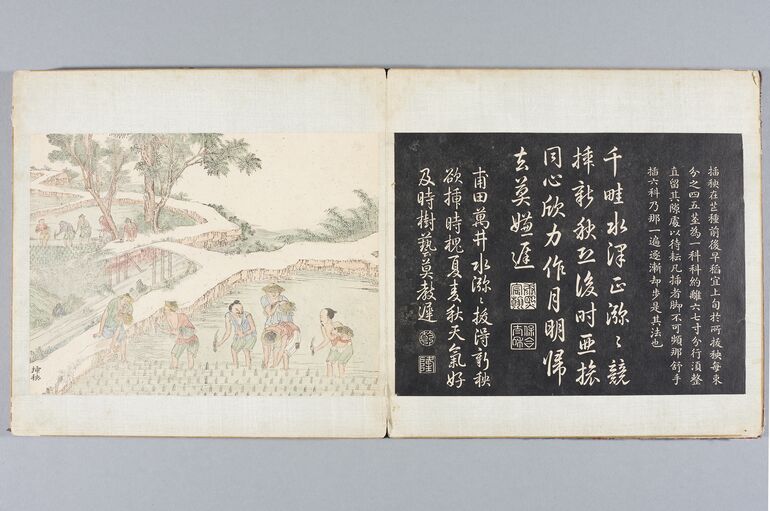 插秧在芒種前後早稻宜上旬於所拔秧每束
分之四五莖為一科科約離六七寸分行湏整
直留其隙處以待耘凡插者脚不可頻那舒手
插六科乃那一遍逐漸却步是其法也
千畦水澤正瀰〻競
揷新秧恐後時亞旅
同心欣力作月明歸
去莫嫌遲
甫田萬井水瀰〻拔得新秧
欲揷時槐夏麥秋天氣好
及時樹藝莫教遲
乾
隆
揷秧